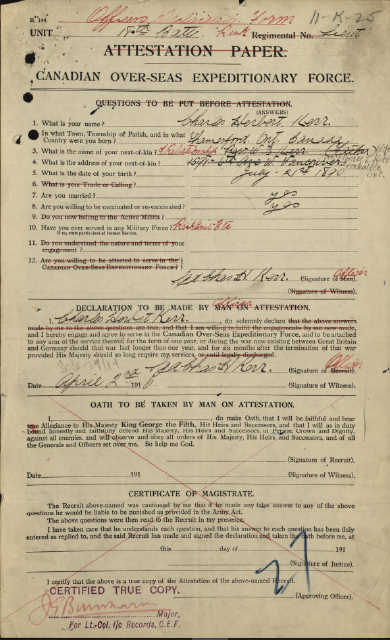 Officers Form 11-K-25
UNIT Regimental No. Lieut
ATTESTATION PAPER.
CANADIAN OVER-SEAS EXPEDITIONARY FORCE.
QUESTIONS TO BE PUT BEFORE ATTESTATION.
(ANSWERS)
1. What is your name? Charles Herbert Kerr
2. In what Town, Township or Parish, and in what Country were you born? Ont. Canada
3. What is the name of your next-of-kin? Kerr
4. What is the address of your next-of-kin? Vancouver
5. What is the date of your birth? July 21st
6. What is your Trade or Calling?
7. Are you married? yes
8. Are you willing to be vaccinated or re-vaccinated? yes
9. Do you now belong to the Active Militia?
10. Have you ever served in any Military Force?
If so, state particulars of former Service.
11. Do you understand the nature and terms of your engagement?
12. Are you willing to be attested to serve in the
CANADIAN OVER-SEAS EXPEDITIONARY FORCE?
Kerr. (Signature of Man). Officer
(Signature of Witness).
DECLARATION TO BE MADE BY MAN ON ATTESTATION. Officer
I, Charles Herbert Kerr, do solemnly declare that the above answers
made by me to the above questions are true, and that I am willing to fulfil the engagements by me now made,
and I hereby engage and agree to serve in the Canadian Over-Seas Expeditionary Force, and to be attached
to any arm of the service therein, for the term of one year, or during the war now existing between Great Britain
and Germany should that war last longer than one year, and for six months after the termination of that war
provided His Majesty should so long require my services, or until legally discharged.
Kerr. (Signature of Recruit). Officer
Date April 2nd 191 (Signature of Witness)
OATH TO BE TAKEN BY MAN ON ATTESTATION.
I, do make Oath, that I will be faithful and bear
true Allegiance to His Majesty King George the Fifth, His Heirs and Successors, and that I will as in duty
bound honestly and faithfully defend His Majesty, His Heirs and Successors, in Person, Crown and Dignity,
against all enemies, and will observe and obey all orders of His Majesty, His Heirs and Successors, and of all
the Generals and Officers set over me. So help me God.
(Signature of Recruit).
Date 191 (Signature of Witness).
CERTIFICATE OF MAGISTRATE.
The Recruit above-named was cautioned by me that if he made any false answer to any of the above
questions he would be liable to be punished as provided in the Army Act.
The above questions were then read to the Recruit in my presence.
I have taken care that he understands each question, and that his answer to each question has been duly
entered as replied to, and the said Recruit has made and signed the declaration and taken the oath before me, at
this day of 191
(Signature of Justice).
27
I certify that the above is a true copy of the Attestation of the above-named Recruit.
CERTIFIED TRUE COPY.
(Approving Officer).
Major,
For Lt.-Col. i/c Records, C.E.F.